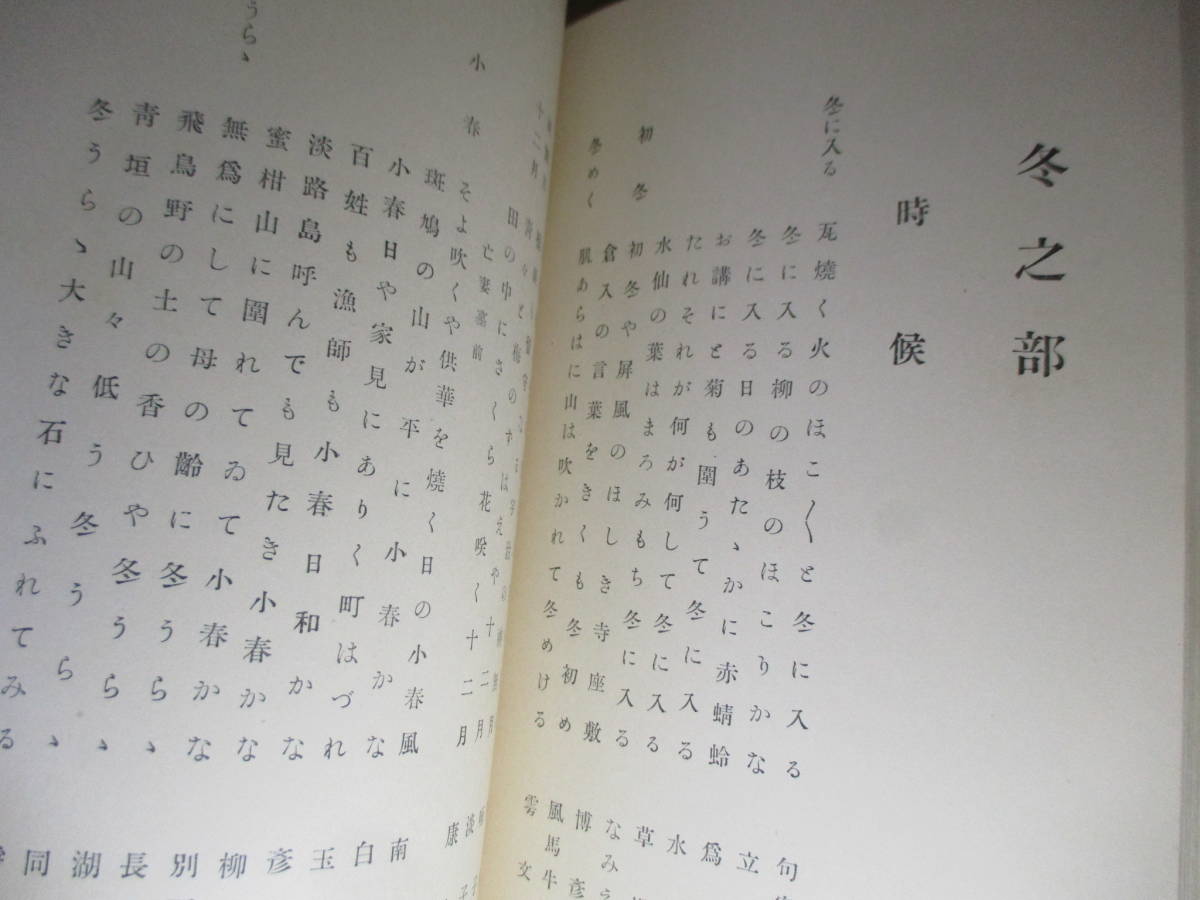 冬之部
時候
冬に入る
瓦燒く火のほこ〱と冬に入る
句
冬に入る柳の枝のほこりかな
立
冬に入る日のあたゝかに赤蜻蛉
爲
お講にと菊も圍うて冬に入る
水
たれそれが何が何して冬に入る
草
水仙の葉はまろみもち冬に入る
博
初冬
初冬や屏風のほしき寺座敷
なみ
倉入の言葉をきくも冬初め
風馬牛
冬めく
肌あらはに山は吹かれて冬めける
雺文
十二月
田の中にさくら花咲く十二月
淡
亡妻墓前
小春
そよ吹くや供華を燒く日の小春風
康
斑鳩の山が平に小春かな
南
小春日や家見にありく町はづれ
白
百姓も漁師も小春日和かな
玉
淡路島呼んでも見たき小春かな
彥
蜜柑山に圍れてゐて小春かな
柳
無爲にして母の齡に冬うらゝ
別
飛鳥野の土の香ひや冬うらゝ
長
靑垣の山々低う冬うらゝ
湖
うらゝ
冬うらゝ大きな石にふれてみる
同